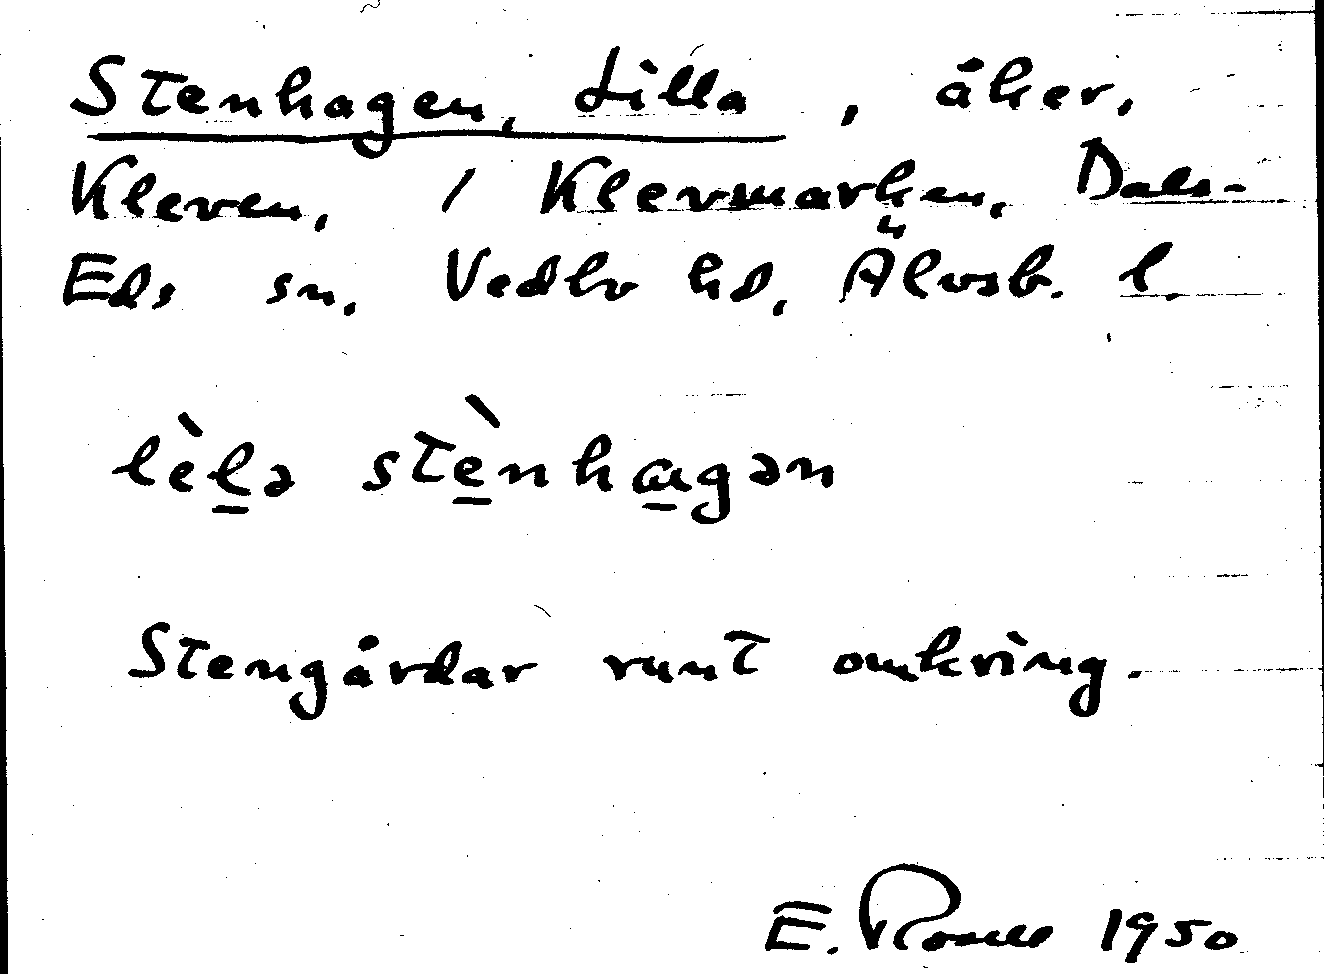 Stenhagen, Lilla, åker,
Kleven, / Klevmarken, Dals-
Eds sn. Vedbo hd, Älvsb. l.
lèl̲ə stè̲nha̲gən
Stengårdar runt omkring.
E. Rosell 1950